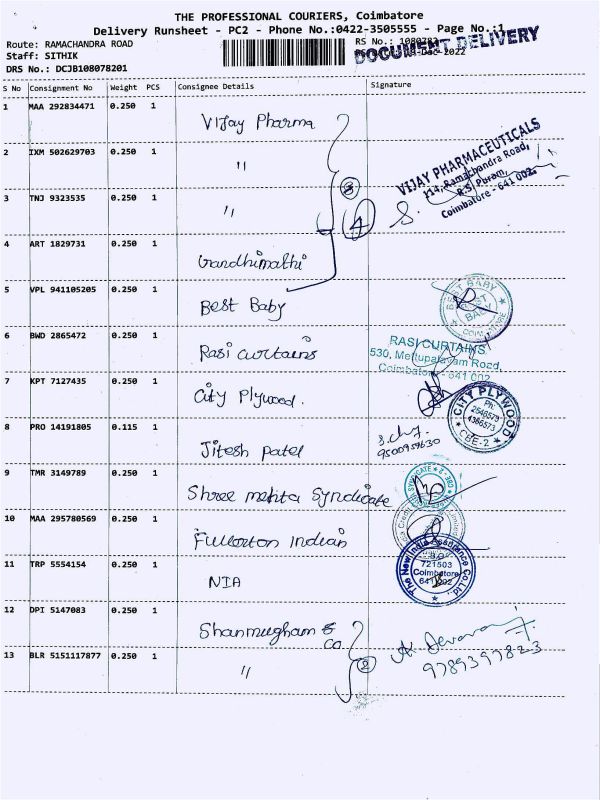 THE PROFESSIONAL COURIERS, Coimbatore
Delivery Runsheet - PC2 - Phone No.:0422-3505555 - Page No.:1
Route: RAMACHANDRA ROAD
Staff: SITHIK
DRS No.: DCJB108078201
RS No.:
2022
DOCUMENT DELIVERY
S No Consignment No Weight PCS Consignee Details Signature
1 MAA 292834471 0.250 1 Vijay Pharma
2 IXM 502629703 0.250 1 "
3 TNJ 9323535 0.250 1 "
4
VIJAY PHARMACEUTICALS
114, Ramachandra Road,
R.S. Puram,
Coimbatore - 641 002.
4 ART 1829731 0.250 1 Gandhimathi
5 VPL 941105205 0.250 1 Best Baby
BEST BABY
COIMBATORE
6 BWD 2865472 0.250 1 Rasi curtains
RASI CURTAINS
530, Mettupalayam Road,
Coimbatore - 641 002
7 KPT 7127435 0.250 1 City Plywood.
CITY PLYWOOD
Ph:
2546573
4366573
CBE-2
8 PRO 14191805 0.115 1 Jitesh patel
9 TMR 3149789 0.250 1 Shree mehta Syndicate
10 MAA 295780569 0.250 1 Fullorton Indian
11 TRP 5554154 0.250 1 NIA
The New India Assurance Co. Ltd.
721503
Coimbatore
641 002
12 DPI 5147083 0.250 1 Shanmugham &
co
13 BLR 5151117877 0.250 1 "
2
9789397823